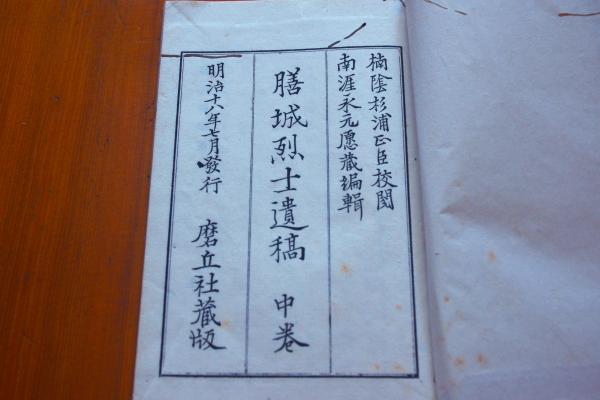 楠陰杉浦正臣校閲
南涯永元愿蔵編輯
膳城烈士遺稿 中巻
明治十八年七月發行 磨丘社蔵版